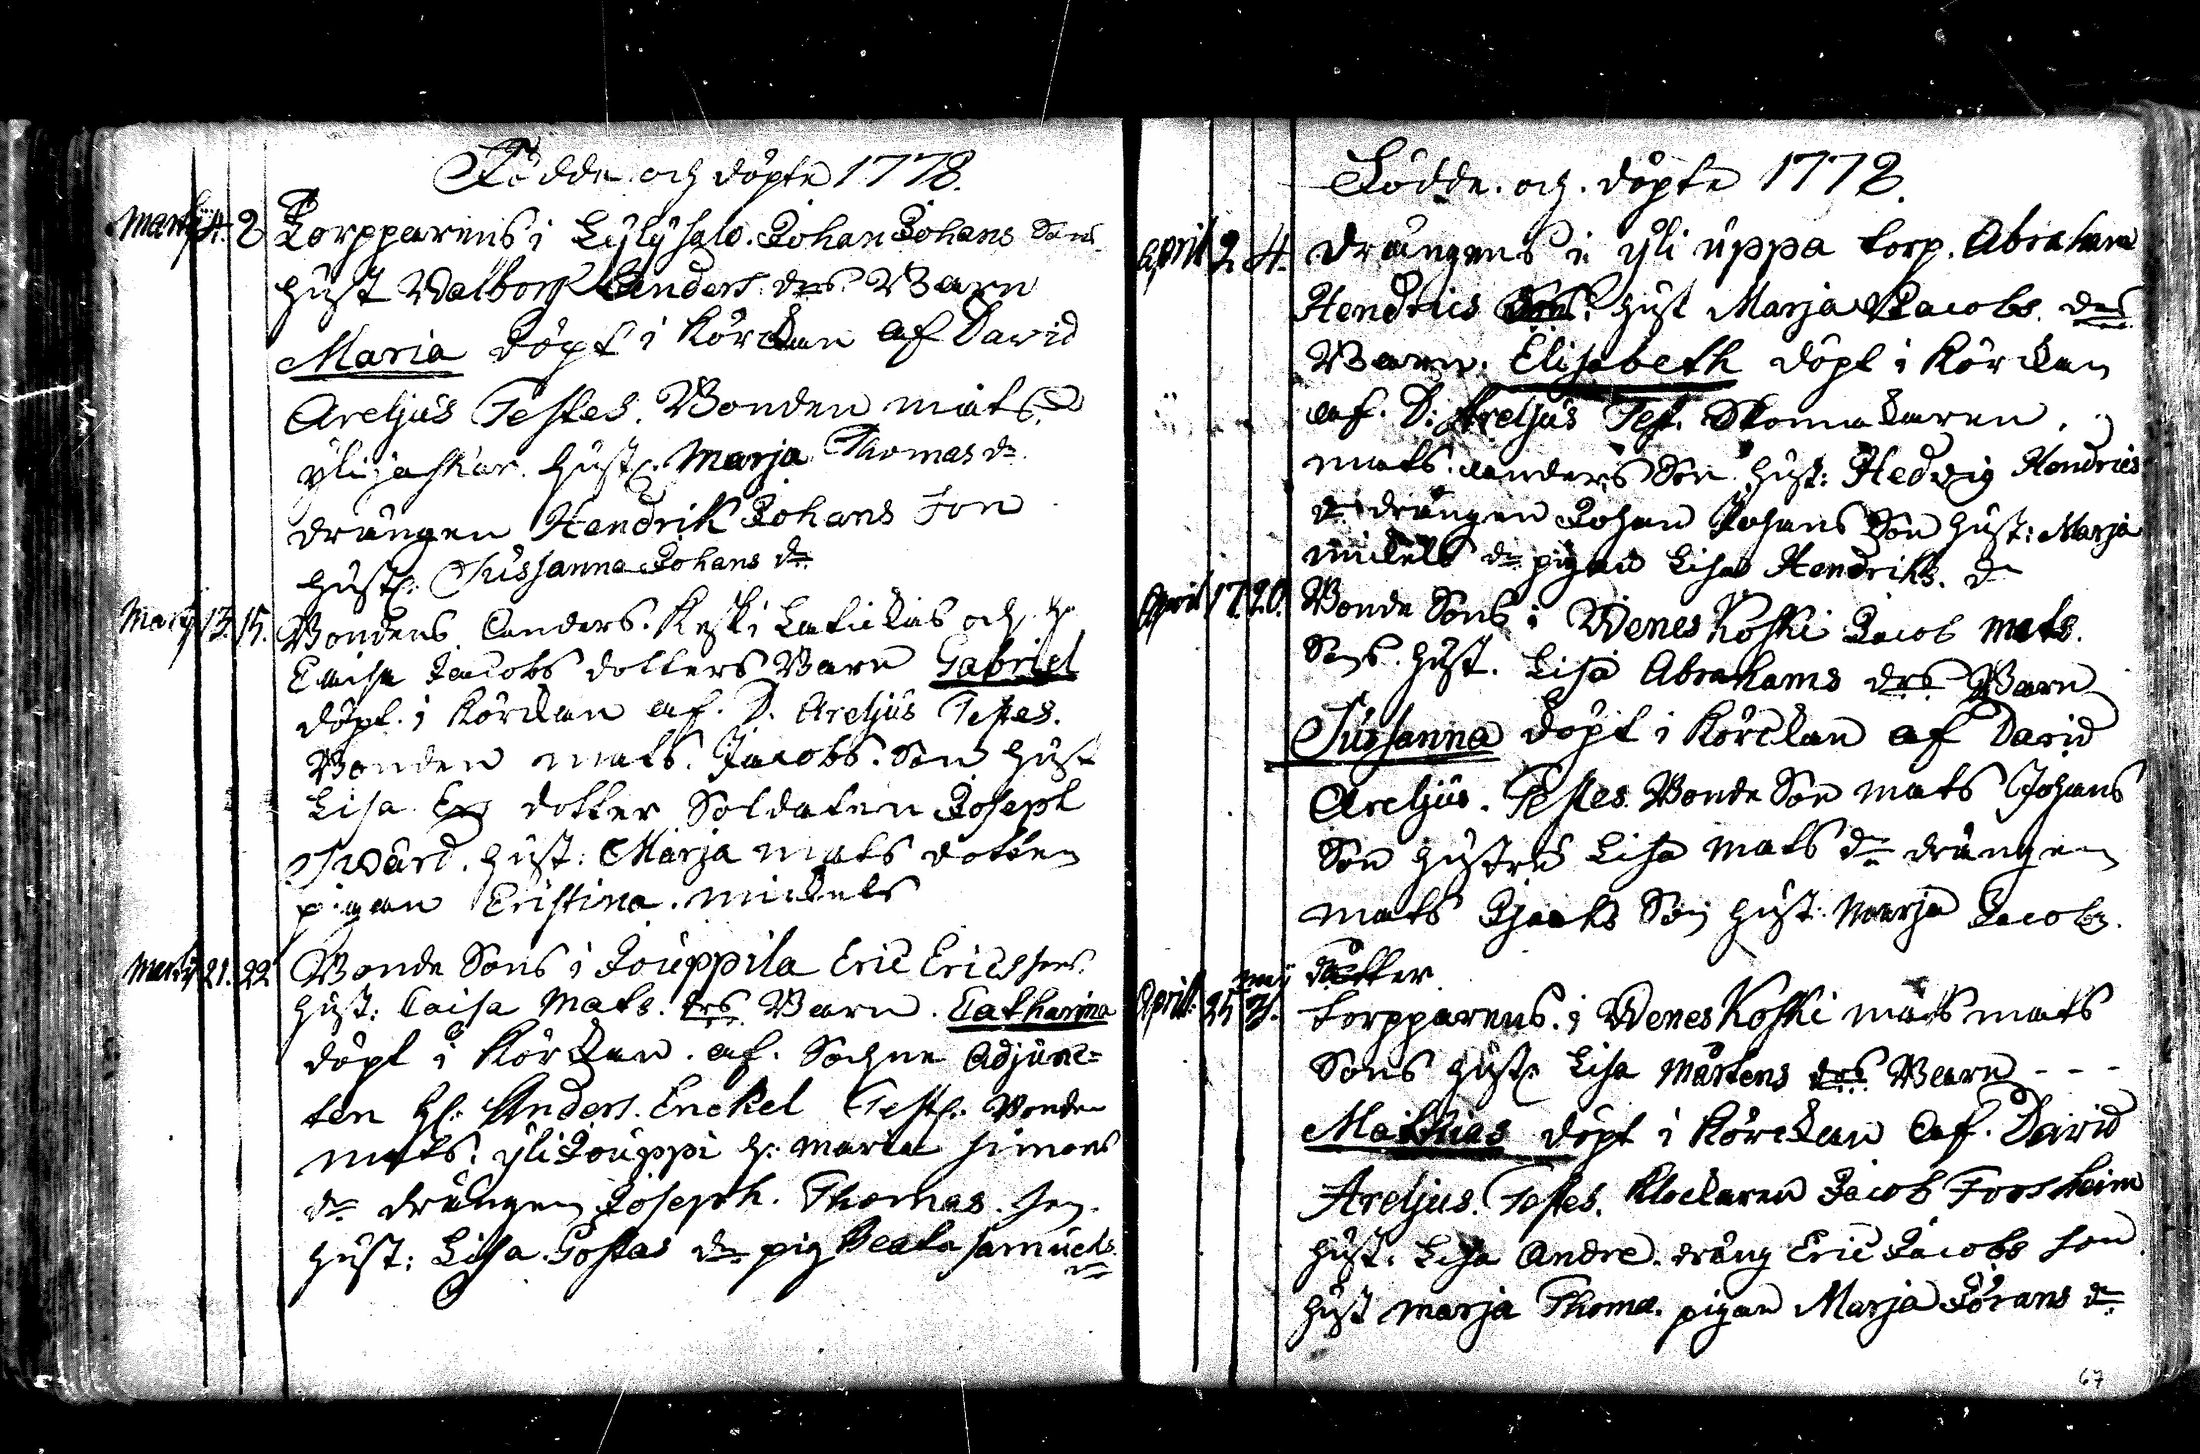 Födde och döpte 1778.
Martij 4. 8 Torpparens i Lylysalo. Johan Johans Sons
hust Walborg Anders drs Barn
Maria döpt i Kÿrckan af David
Areljus Testes. Bonden mats
ÿlijaskar. hust. Marja Thomas dr
drängen Hendrik Johans son
hust. Sussanna Johans dr
Martij 13. 15. Bondens Anders. Keski Latikas och h.
Caisa Jacobs dotters Barn Gabriel
döpt. i Kÿrckan af. D. Areljus Testes.
Bonden mats. Jacobs. Son hust
Lisa dotter Soldaten Joseph
Swärd. hust: Marja mats dotter
pigan Cristina. mickels
Martij 21. 22 Bonde Sons i Jouppila Eric Erics sons
hust: Caisa Mats. drs Barn. Catharina
döpt i Kÿrckan. af. Sochne Adjunc=
ten H. Anders. Enckel Test. Bonden
mats. ÿliJouppi h. maria simons
dr drängen Joseph. Thomas. son.
hust: Lisa Gostas dr pig Beata samuels
dr
Födde. och. döpte 1778.
April 2 4. drängens i ÿli uppa torp. Abraham
Hendrics Sons. hust Marja Jacobs. drs
Barn. Elisabeth döpt i Kÿrckan
af. D: Areljus Test. Skomakaren.
mats. anders Son hust: Hedvig Hendrics
dr drängen Johan Johans Son hust: Marja
mickels dr pigan Lisa Hendriks. dr
April 17. 20. Bonde Sons i Weneskoski Jacob mats.
Sons. hust. Lisa Abrahams drs Barn
Sussanna döpt i Kÿrckan af David
Areljus. Testes. Bonde Son mats Johans
Son hustru Lisa mats dr drängen
mats Isaks Son hust: Marja Jacobs.
dotter
maij
April 25 3. Torpparens. i Weneskoski mats mats
Sons hust. Lisa Mårtens drs Barn - - -
Mathias döpt i Kÿrckan af. David
Areljus. Testes. Klockaren Jacob Forsheim
hust. Lisa Andre. dräng Eric Jacobs son
hust marja Thoma. pigan Marja Jörans dr
67